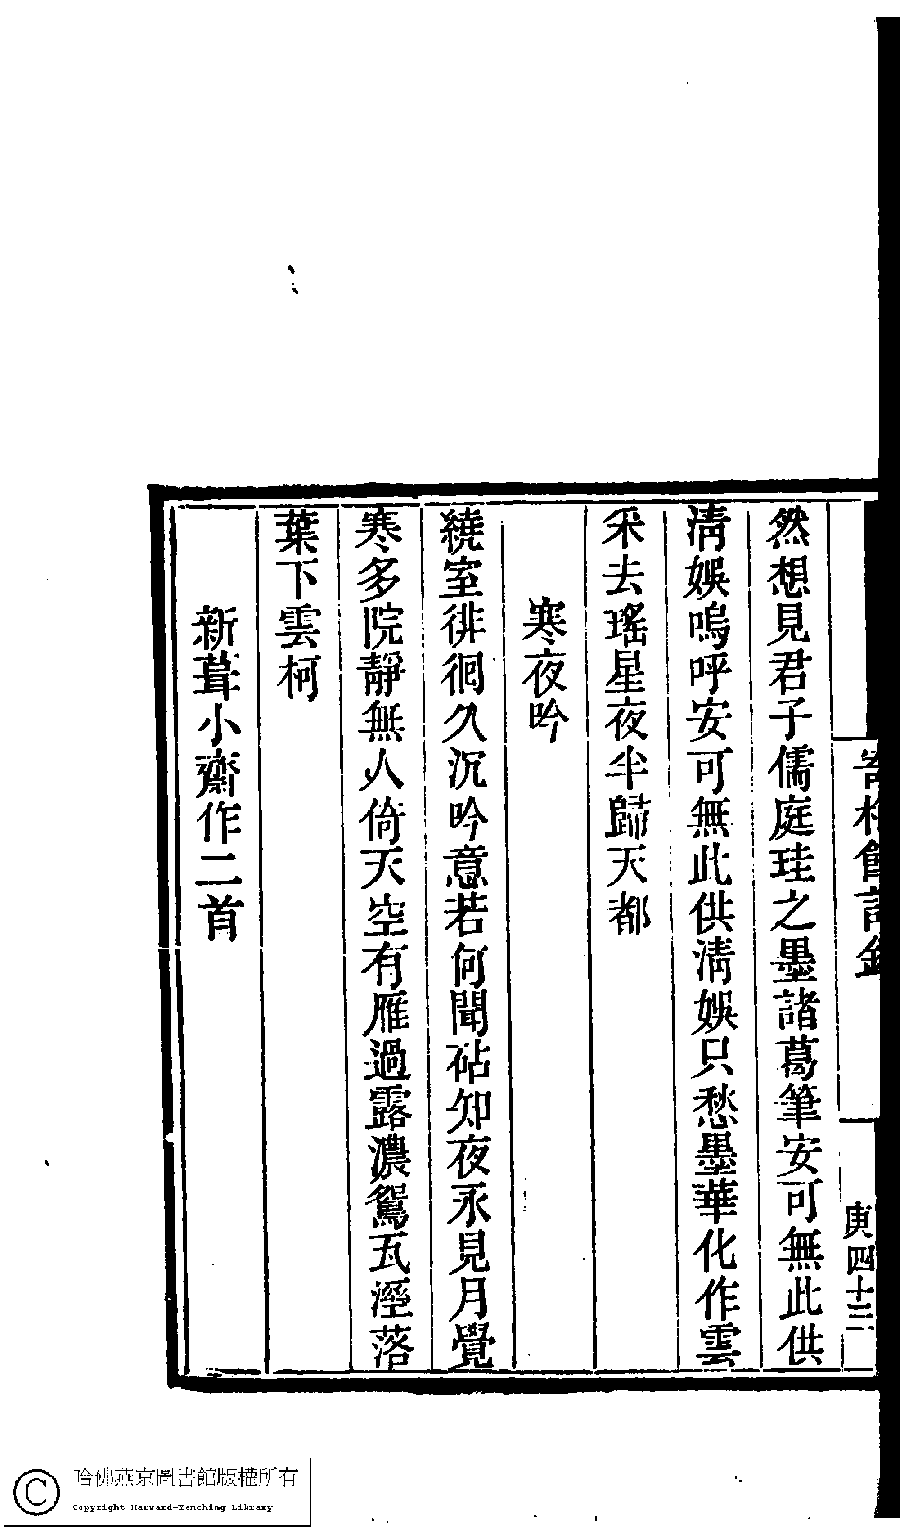 然想見君子儒庭珪之墨諸葛筆安可無此供
淸娛嗚呼安可無此供淸娛只愁墨華化作雲
采去瑤星夜半歸天都
寒夜吟
繞室徘徊久沉吟意若何聞砧知夜永見月覺
寒多院靜無人倚天空有雁過露濃鴛瓦溼落
葉下雲柯
新葺小齋作二首
庚四十三
哈佛燕京圖書館版權所有
Copyright Harvard-Yenching Library